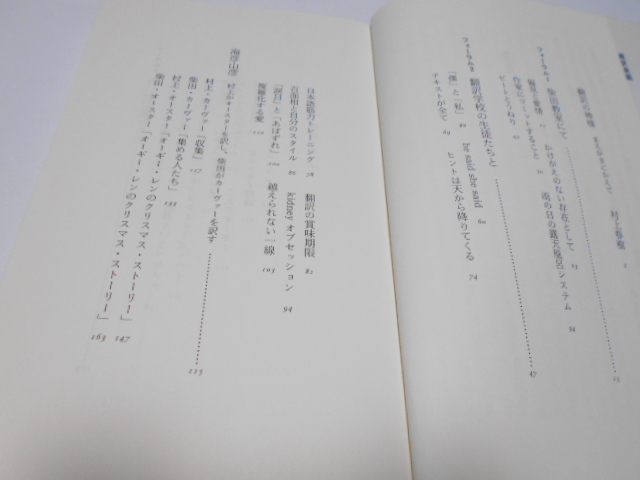 翻訳夜話
翻訳の神様 まえがきにかえて 村上春樹 3
フォーラム1 柴田教室にて 13
偏見と愛情 15 かけがえのない存在として 25
作家にコミットすること 雨の日の露天風呂システム 34
ビートとうねり 45
フォーラム2 翻訳学校の生徒たちと 47
「僕」と「私」 he said she said 60
テキストが全て 69 ヒントは天から降りてくる 74
日本語筋力トレーニング 78 翻訳の賞味期限 82
百面相と自分のスタイル 86 kidneyオブセッション 94
「涙目」と「あばずれ」 100 越えられない一線 103
複雑化する愛 110
海彦山彦
村上がオースターを訳し、柴田がカーヴァーを訳す 115
村上・カーヴァー「収集」 117
柴田・カーヴァー「集める人たち」 133
村上・オースター「オーギー・レンのクリスマス・ストーリー」 147
柴田・オースター「オーギー・レンのクリスマス・ストーリー」 163